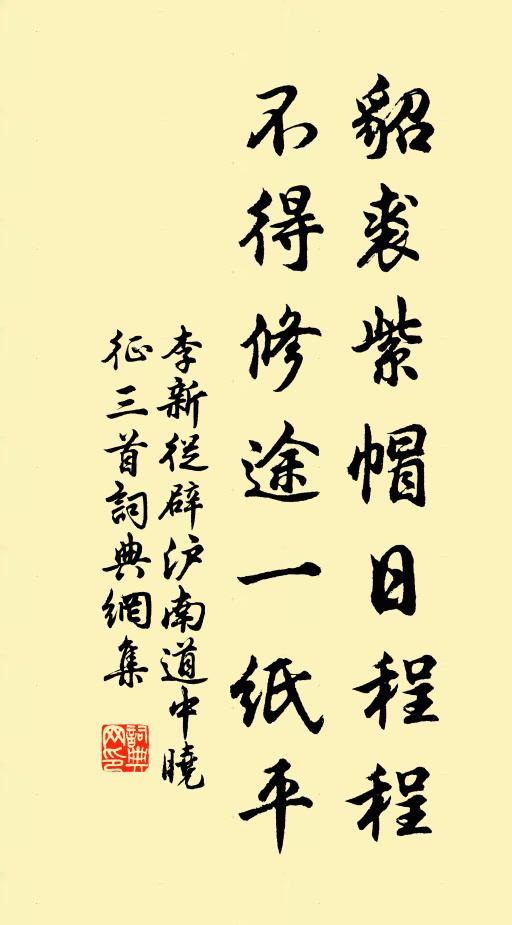 貂裘紫帽日程程
不得修途一紙平
李新從辟沪南道中曉
征三首詞典網集
詞典網印